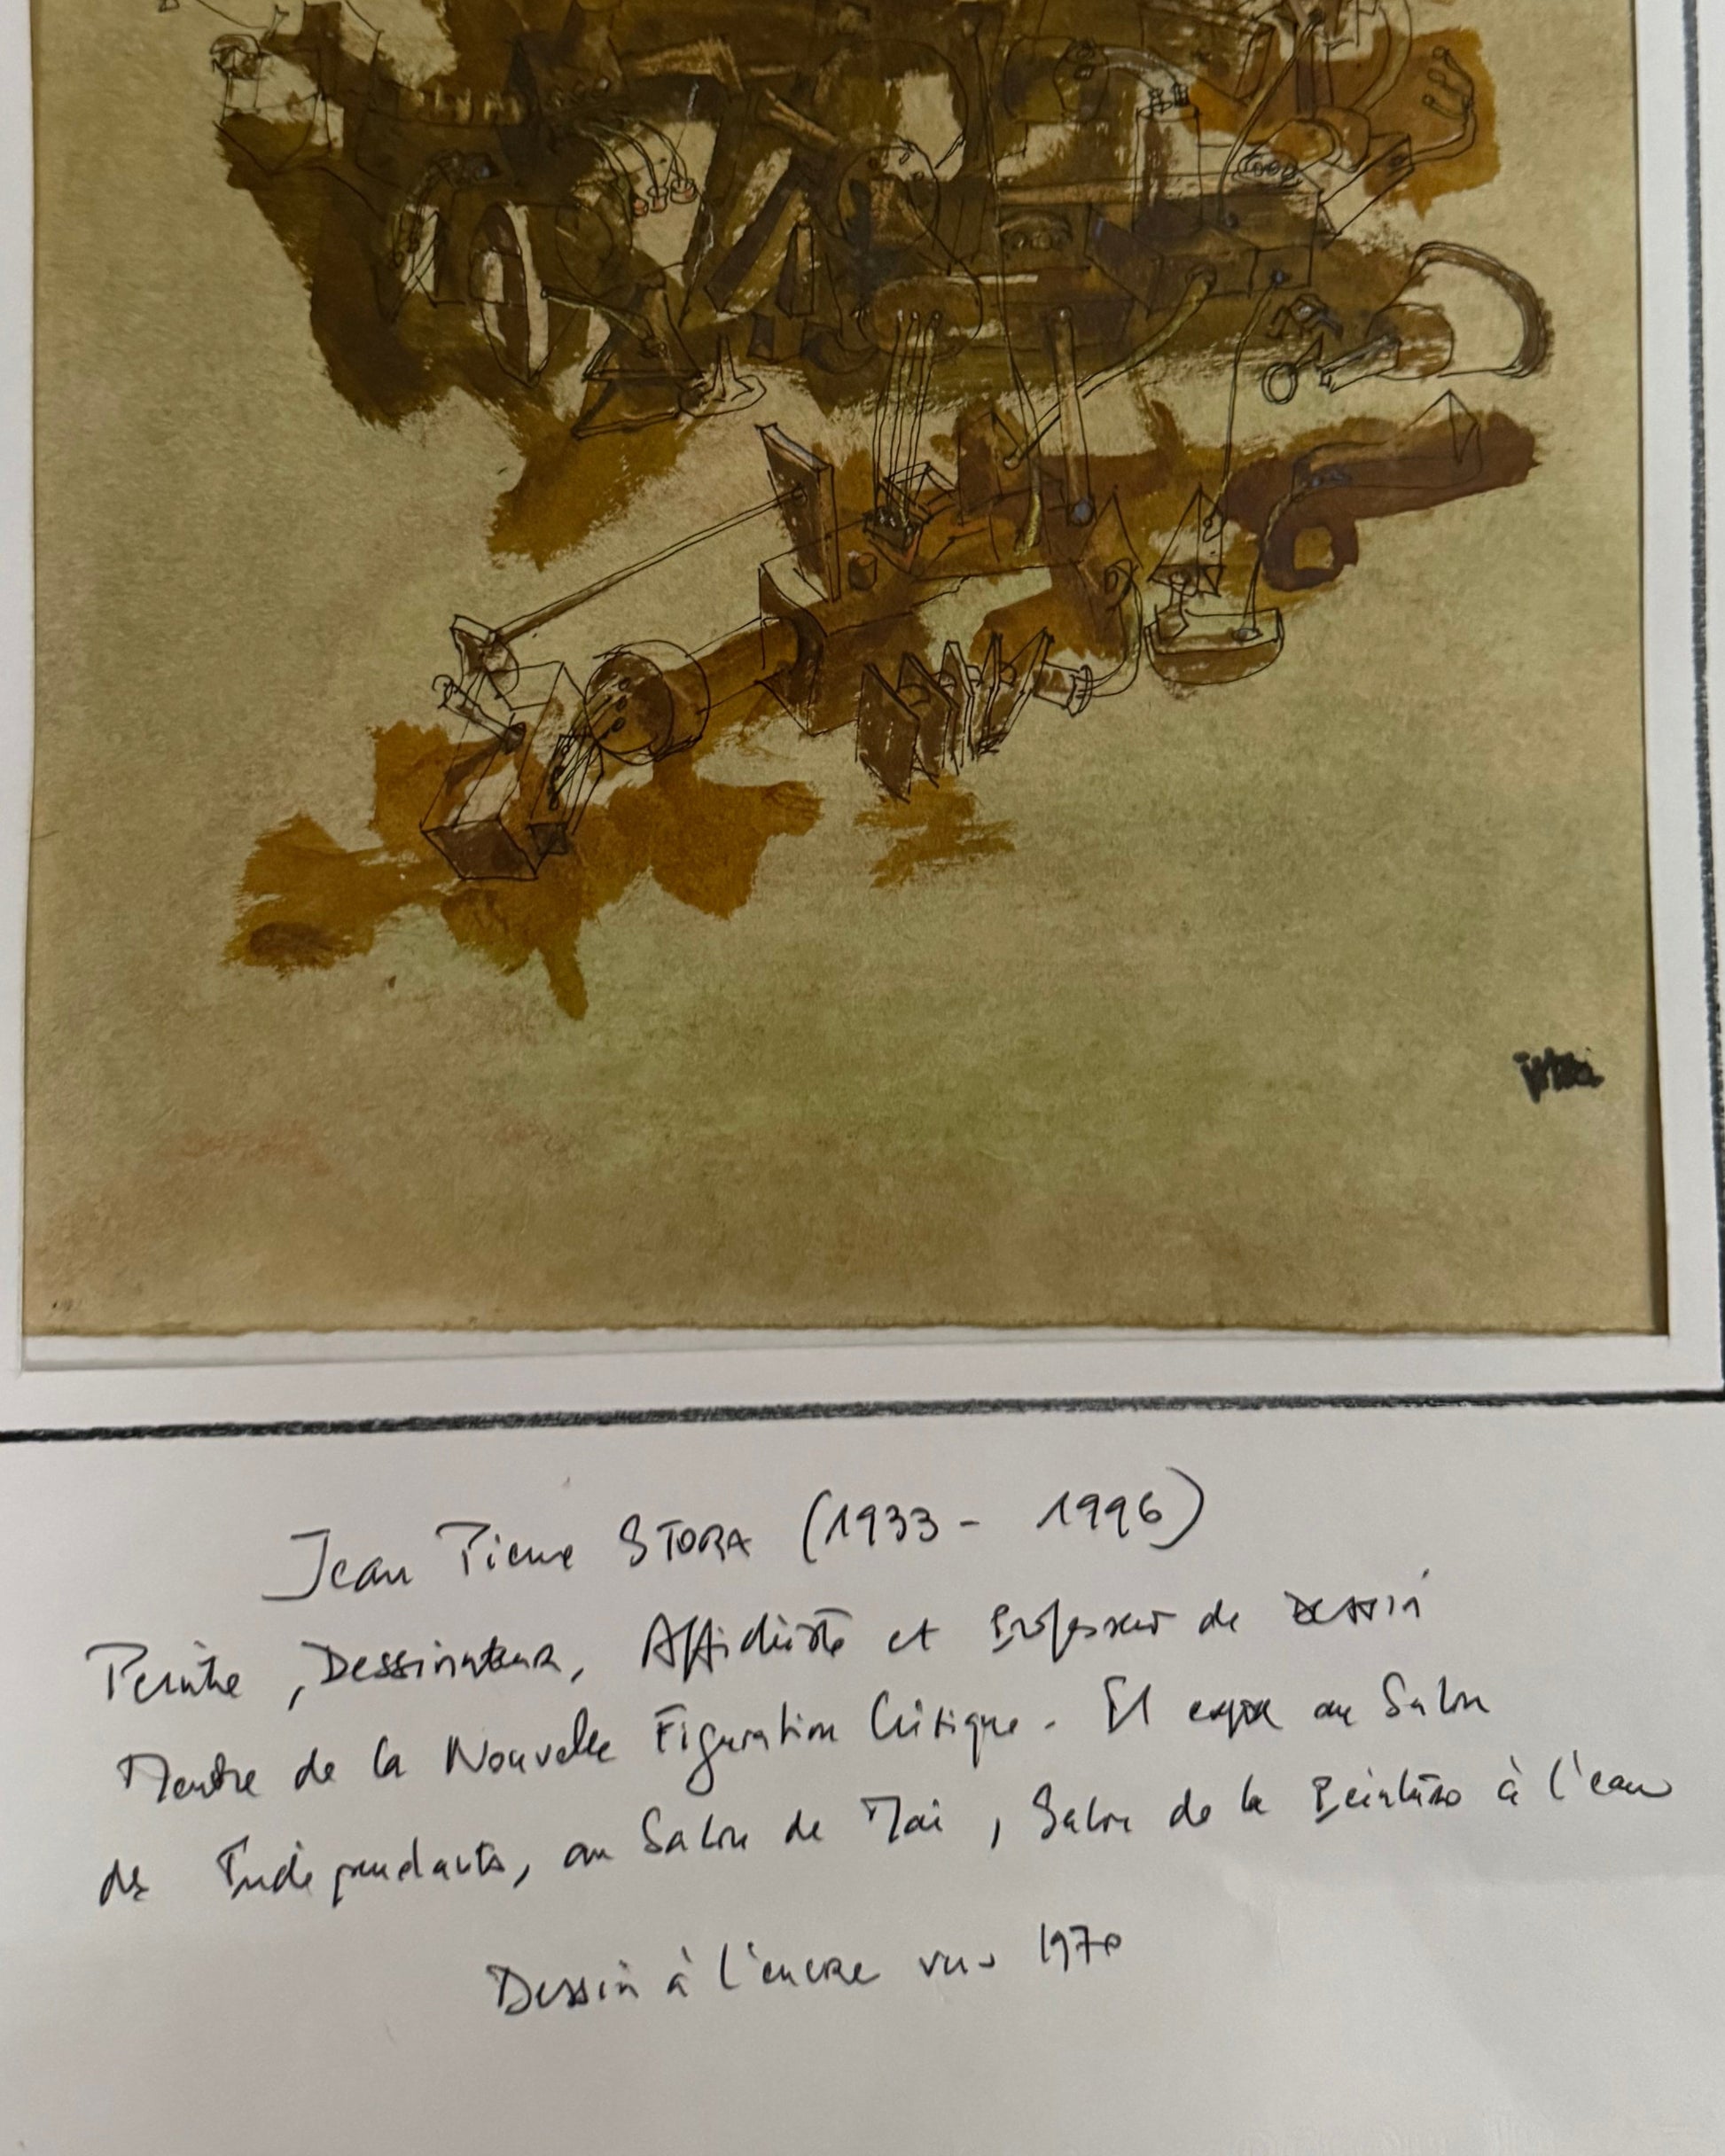 Jean Pierre STORA (1933 - 1996)
Peintre, Dessinateur, Affichiste et Professeur de Dessin
Membre de la Nouvelle Figuration Critique. Il expose au Salon
des Indépendants, au Salon de Mai, Salon de la Peinture à l'eau
Dessin à l'encre vers 1970